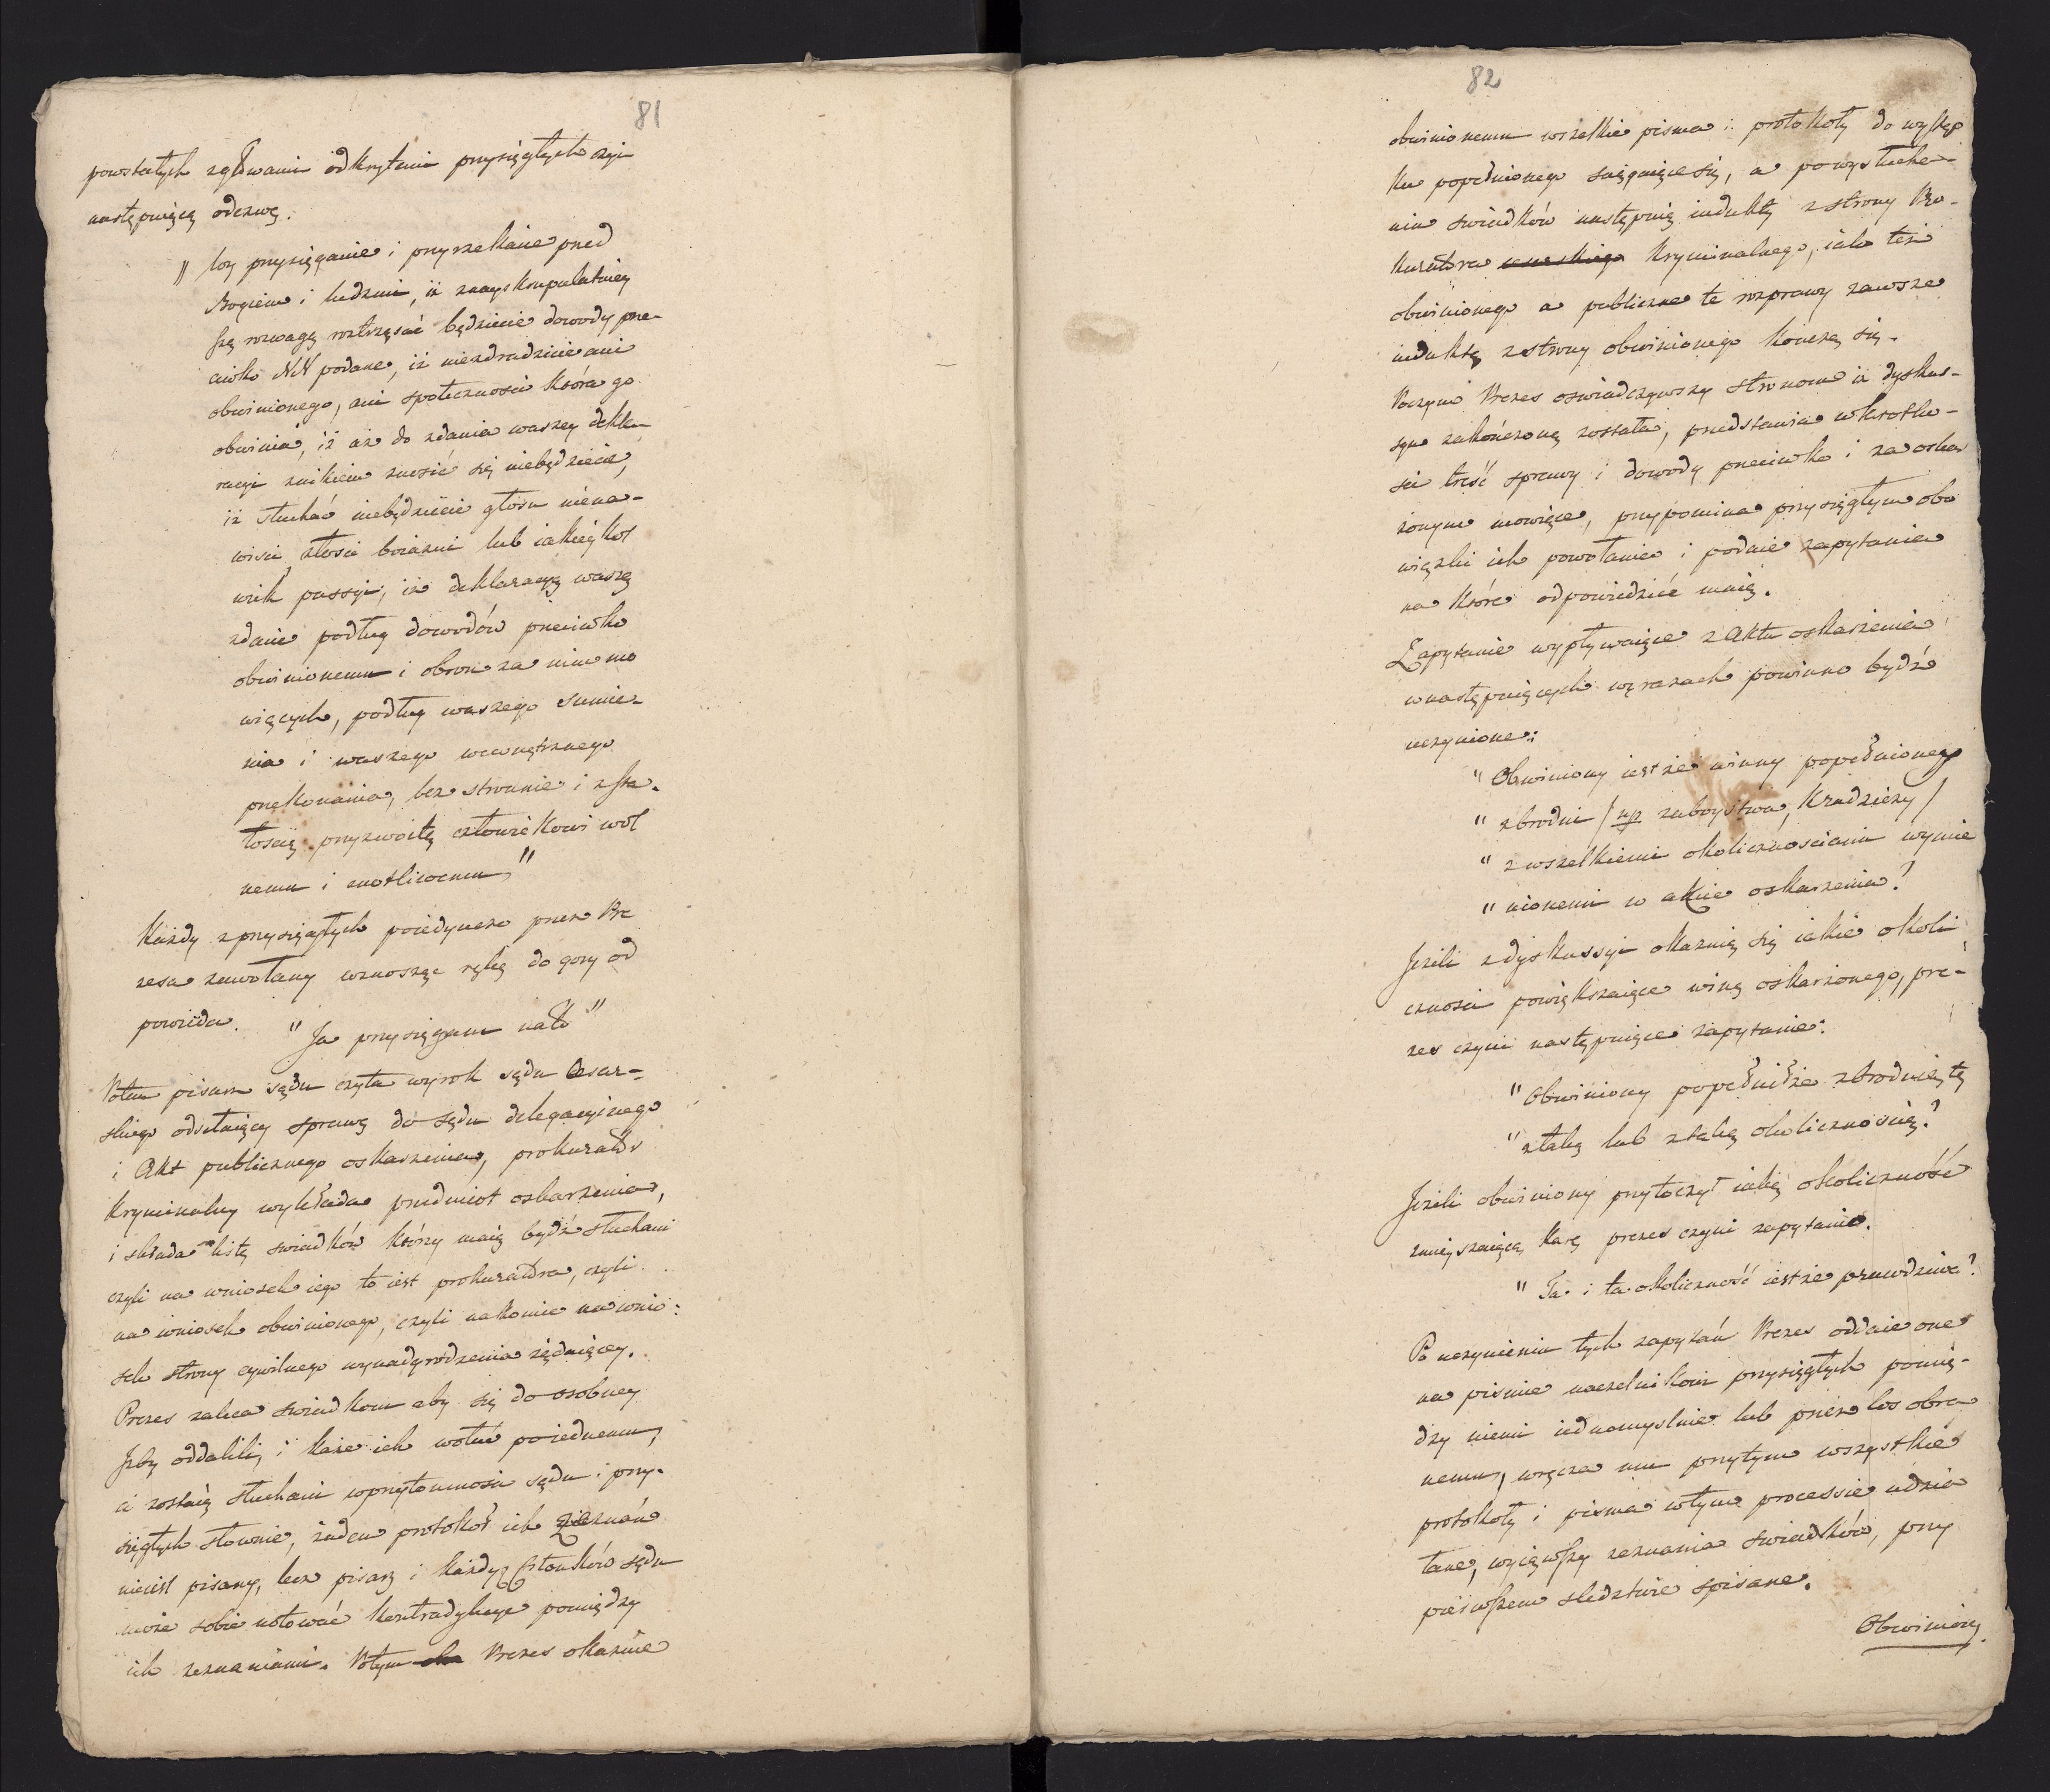 81
powstałych z głowami odkrytemi przysięgłych czyni
następuiącą odezwę.
„ Wy przysięgacie i przyrzekacie przed
Bogiem i ludzmi, iż z nayskrupulatniey
szą rozwagą roztrząsać będziecie dowody prze-
ciwko NN podane, iż niezdradzicie ani
obwinionego, ani społeczności która go
obwinia, iż aż do zdania waszey dekla-
racyi z nikiem znosić się niebędziecie,
iż słuchać niebędziecie głosu niena-
wisci, złości boiazni lub iakieykol
wiek passyi, iż deklaracyą waszą
zdacie podług dowodów przeciwko
obwinionemu i obron za nim mo
wiących, podług waszego sumie-
nia i waszego wewnętrznego
przekonania, bez stronnie i z sta-
łoscią przyzwoitą człowiekowi wol
nemu i cnotliwemu”
Każdy z przysięgłych poiedyncze przez Pre
zesa zawołany wznosząc rękę do gory od
powiada. „Ja przysięgam na to”
Potem pisarz sądu czyta wyrok sądu Cesar-
skiego odsełaiący sprawę do sądu delegacyinego
i Akt publicznego oskarzenia, prokurator
Kryminalny wykłada przedmiot oskarzenia,
i składa listę swiadków którzy maią bydź słuchani
czyli na wniosek iego to iest prokuratora, czyli
na wniosek obwinionego, czyli nakoniec na wnio:
sek strony cywilnego wynadgrodzenia żądaiącey.
Prezes zaleca swiadkom aby się do osobney
Izby oddalili, i każe ich wołać poiednemu,
ci zostaią słuchani w przytomnosci sądu i przy-
sięgłych słownie, żaden protokół ich zeznań
nieiest pisany, lecz pisarz i każdy z Członków sądu
może sobie notować kontradykcye pomiędzy
ich zeznaniami. Potym Prezes okazuie
82
obwinionemu wszelkie pisma i protokoły do występ
ku popełnionego sciągaiące się, a po wysłucha-
niu swiadków następuią indukty z strony Pro-
kuratora Kryminalnego, iako też
obwinionego a publiczne te rozprawy zawsze
induktą z strony obwinionego kończą się.
Poczym Prezes oswiadczywszy stronom iż dyskus-
sya zakończoną została, przedstawia w krotko-
sci treść sprawy i dowody przeciwko i za oskar
żonym mowiące, przypomina przysięgłym obo
wiązki ich powołania i podaie zapytania
na które odpowiedzić maią.
Zapytanie wypływaiące z Aktu oskarzenia
w następuiących wyrazach powinno bydź
uczynione:
„ Obwiniony iest że winny popełnionego
„ zbrodni / np zaboystwa, kradzieży /
„ z wszelkiemi okolicznosciami wymie
„ nionemi w akcie oskarzenia?
Jeżeli z dyskussyi okazuią się iakie okoli
cznosci powiększaiące winę oskarzonego, pre-
zes czyni następuiące zapytanie:
„ Obwiniony popełnił że zbrodnią tę
„ z taką lub z taką okolicznoscią?
Jeżeli obwiniony przytoczył iaką okoliczność
zmnieyszaiącą karę prezes czyni zapytanie.
„ Ta i ta okoliczność iest że prawdziwa?
Po uczynieniu tych zapytań Prezes oddaie one
na pismie naczelnikowi przysięgłych pomię-
dzy niemi iednomyslnie lub przez los obra
nemu, wręcza mu przytym wszystkie
protokoły i pisma w tym processie udzia
łane, wyiąwszy zeznania swiadków, przy
pierwszem sledztwie spisane.
Obwiniony